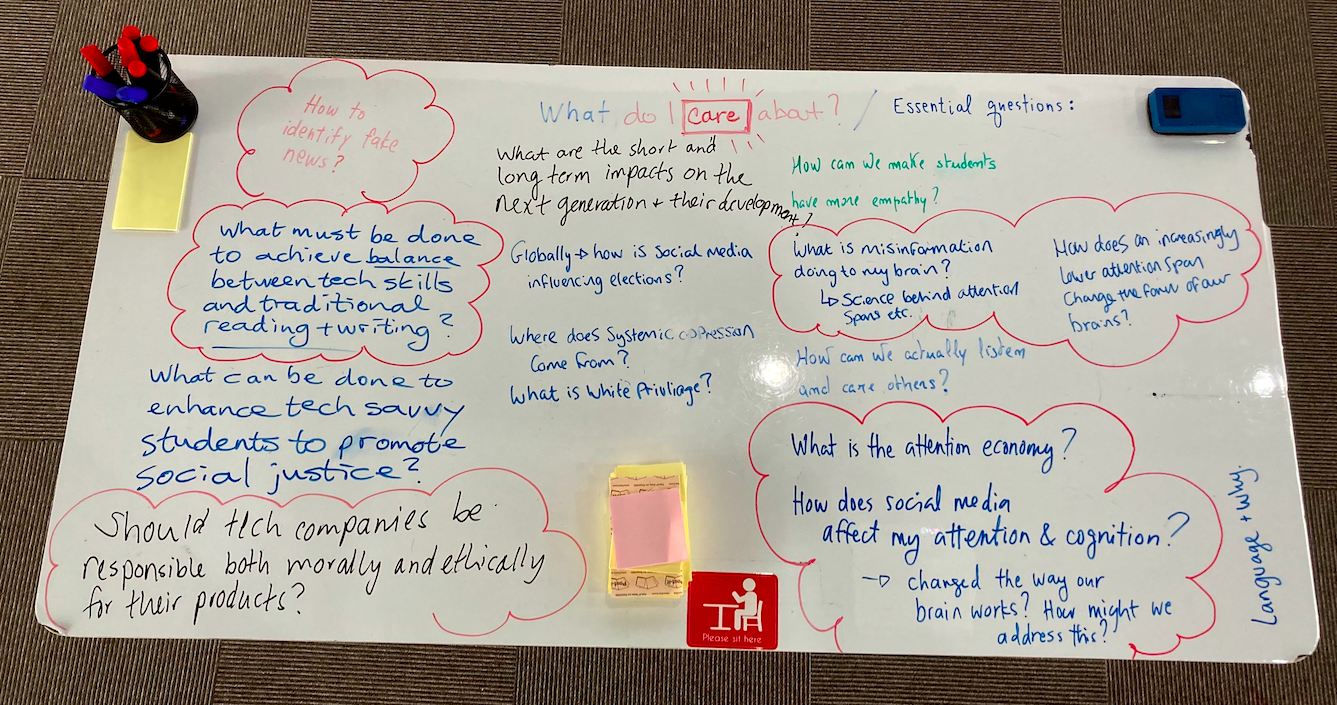 What do I care about? / Essential questions:
How to
identify fake
news?
What must be done
to achieve balance
between tech skills
and traditional
reading + writing?
What can be done to
enhance tech savvy
students to promote
social justice?
Should tech companies be
responsible both morally and ethically
for their products?
What are the short and
long term impacts on the
next generation + their development?
Globally → how is Social media
influencing elections?
Where does Systemic oppression
Come From?
What is White Priviliage?
How can we make students
have more empathy?
What is misinformation
doing to my brain?
↳ Science behind attention
Spans etc.
How does an increasingly
lower attention span
Change the form of our
brains?
How can we actually listen
and care others?
What is the attention economy?
How does social media
affect my attention & cognition?
→ changed the way our
brain works? How might we
address this?
Language + Why.
Please sit here